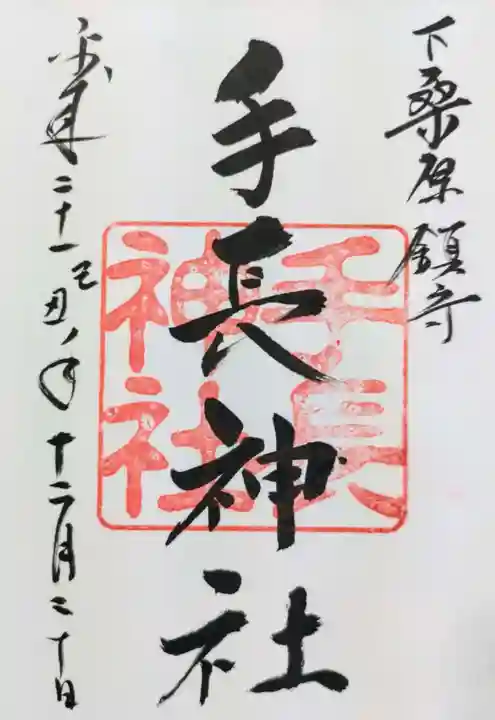 下桑原鎮守
手長神社
手長
神社
平成二十一己丑ノ年十二月二十日